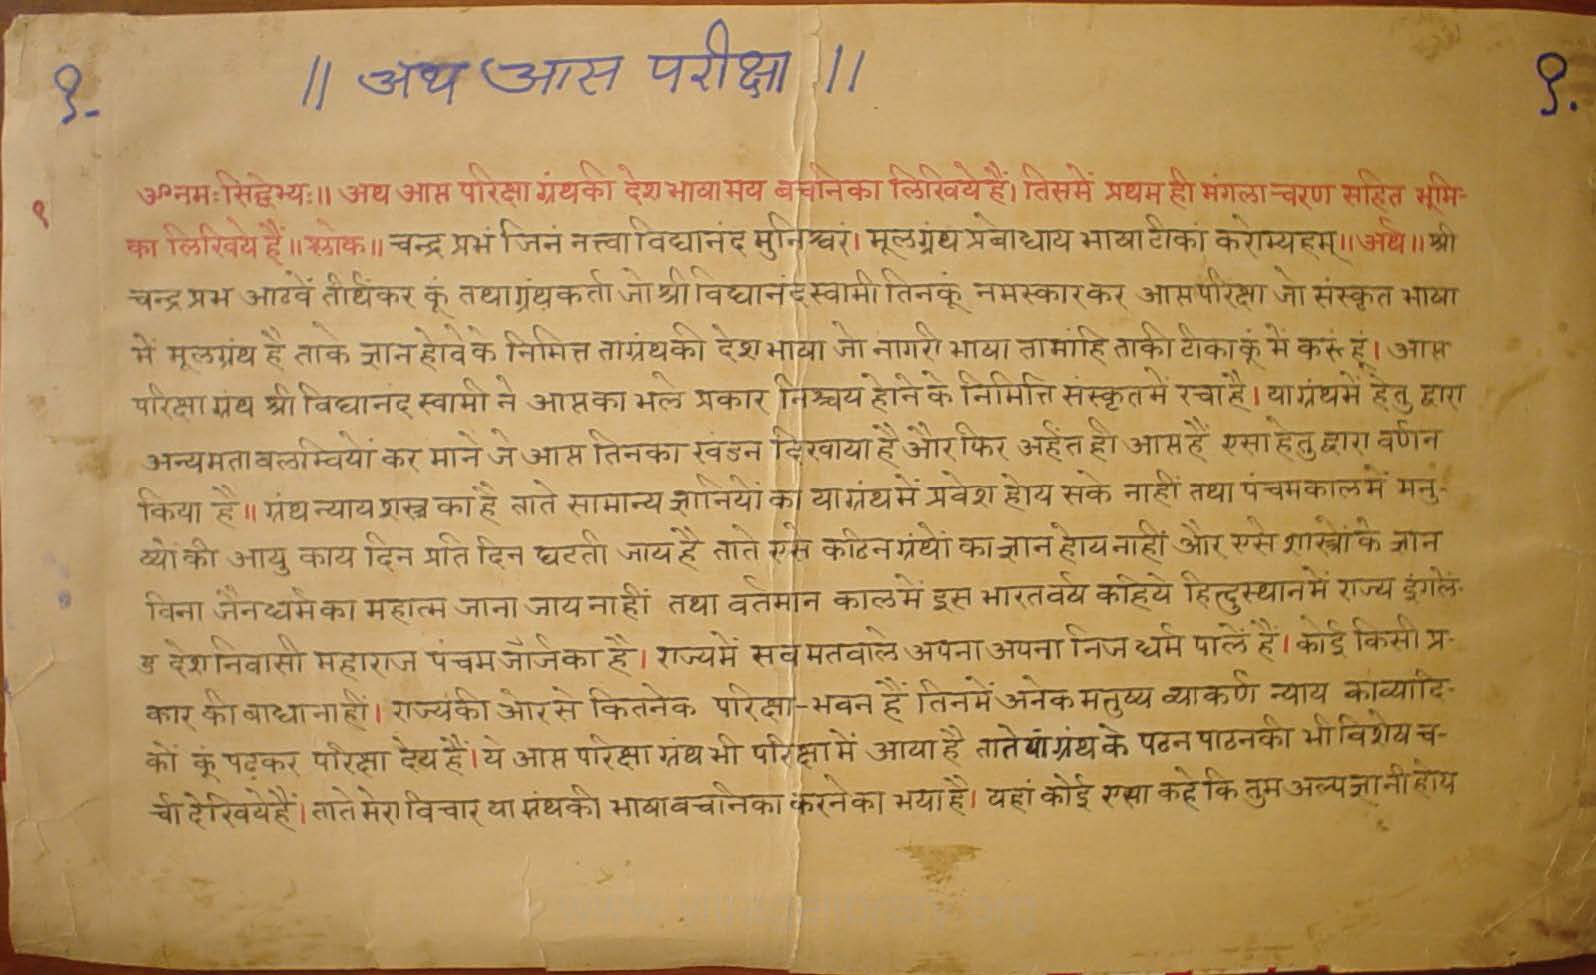 १. ॥ अथ आप्त परीक्षा ॥ १.
ॐनमःसिद्धेभ्यः॥ अथ आप्त परिक्षा ग्रंथकी देश भाषा मय बचनिका लिखिये हैं। तिसमें प्रथम ही मंगलाचरण सहित भूमि-
१
का लिखिये हैं॥श्लोक॥ चन्द्र प्रभं जिनं नत्त्वा विद्यानंद मुनिश्वरं। मूलग्रंथ प्रबोधाय भाषा टीकां करोम्यहम्॥अर्थ॥ श्री
चन्द्र प्रभ आठवें तीर्थंकर कूं तथा ग्रंथकर्ता जो श्री विद्यानंद स्वामी तिनकूं नमस्कार कर आप्त परिक्षा जो संस्कृत भाषा
में मूलग्रंथ है ताके ज्ञान होवेके निमित्त ताग्रंथकी देश भाषा जो नागरी भाषा तामांहि ताकी टीका कूं में करूं हूं। आप्त
परिक्षा ग्रंथ श्री विद्यानंद स्वामी ने आप्तका भले प्रकार निश्चय होनेके निमित्ति संस्कृतमें रचा है। या ग्रंथमें हेतु द्वारा
अन्यमतावलम्वियों कर माने जे आप्त तिनका खडन दिखाया है और फिर अर्हंत ही आप्त हैं एसा हेतु द्वारा वर्णन
किया है॥ ग्रंथ न्याय शस्त्र का है ताते सामान्य ज्ञानियों का या ग्रंथ में प्रवेश होय सके नाहीं तथा पंचमकालमें मनु-
ष्यों की आयु काय दिन प्रति दिन घटती जाय है ताते एसे कठिन ग्रंथों का ज्ञान होय नाहीं और एसे शास्त्रों के ज्ञान
विना जैनधर्म का महात्म जाना जाय नाहीं तथा वर्तमान कालमें इस भारतवर्ष कहिये हिन्दुस्थानमें राज्य इंगलें-
ड देश निवासी महाराज पंचम जॉर्जका है। राज्यमें सव मतवाले अपना अपना निज धर्म पालें हैं। कोई किसी प्र-
कार की बाधा नाहीं। राज्यकी ओर से कितनेक परिक्षा-भवन हैं तिनमें अनेक मनुष्य व्याकर्ण न्याय काव्यादि-
कों कूं पढ़कर परिक्षा देय हैं। ये आप्त परिक्षा ग्रंथ भी परिक्षामें आया है ताते या ग्रंथ के पठन पाठनकी भी विशेष च-
र्चा देखिये हैं। ताते मेरा विचार या ग्रंथकी भाषा वचनिका करनेका भया है। यहां कोई एसा कहे कि तुम अल्पज्ञानी होय